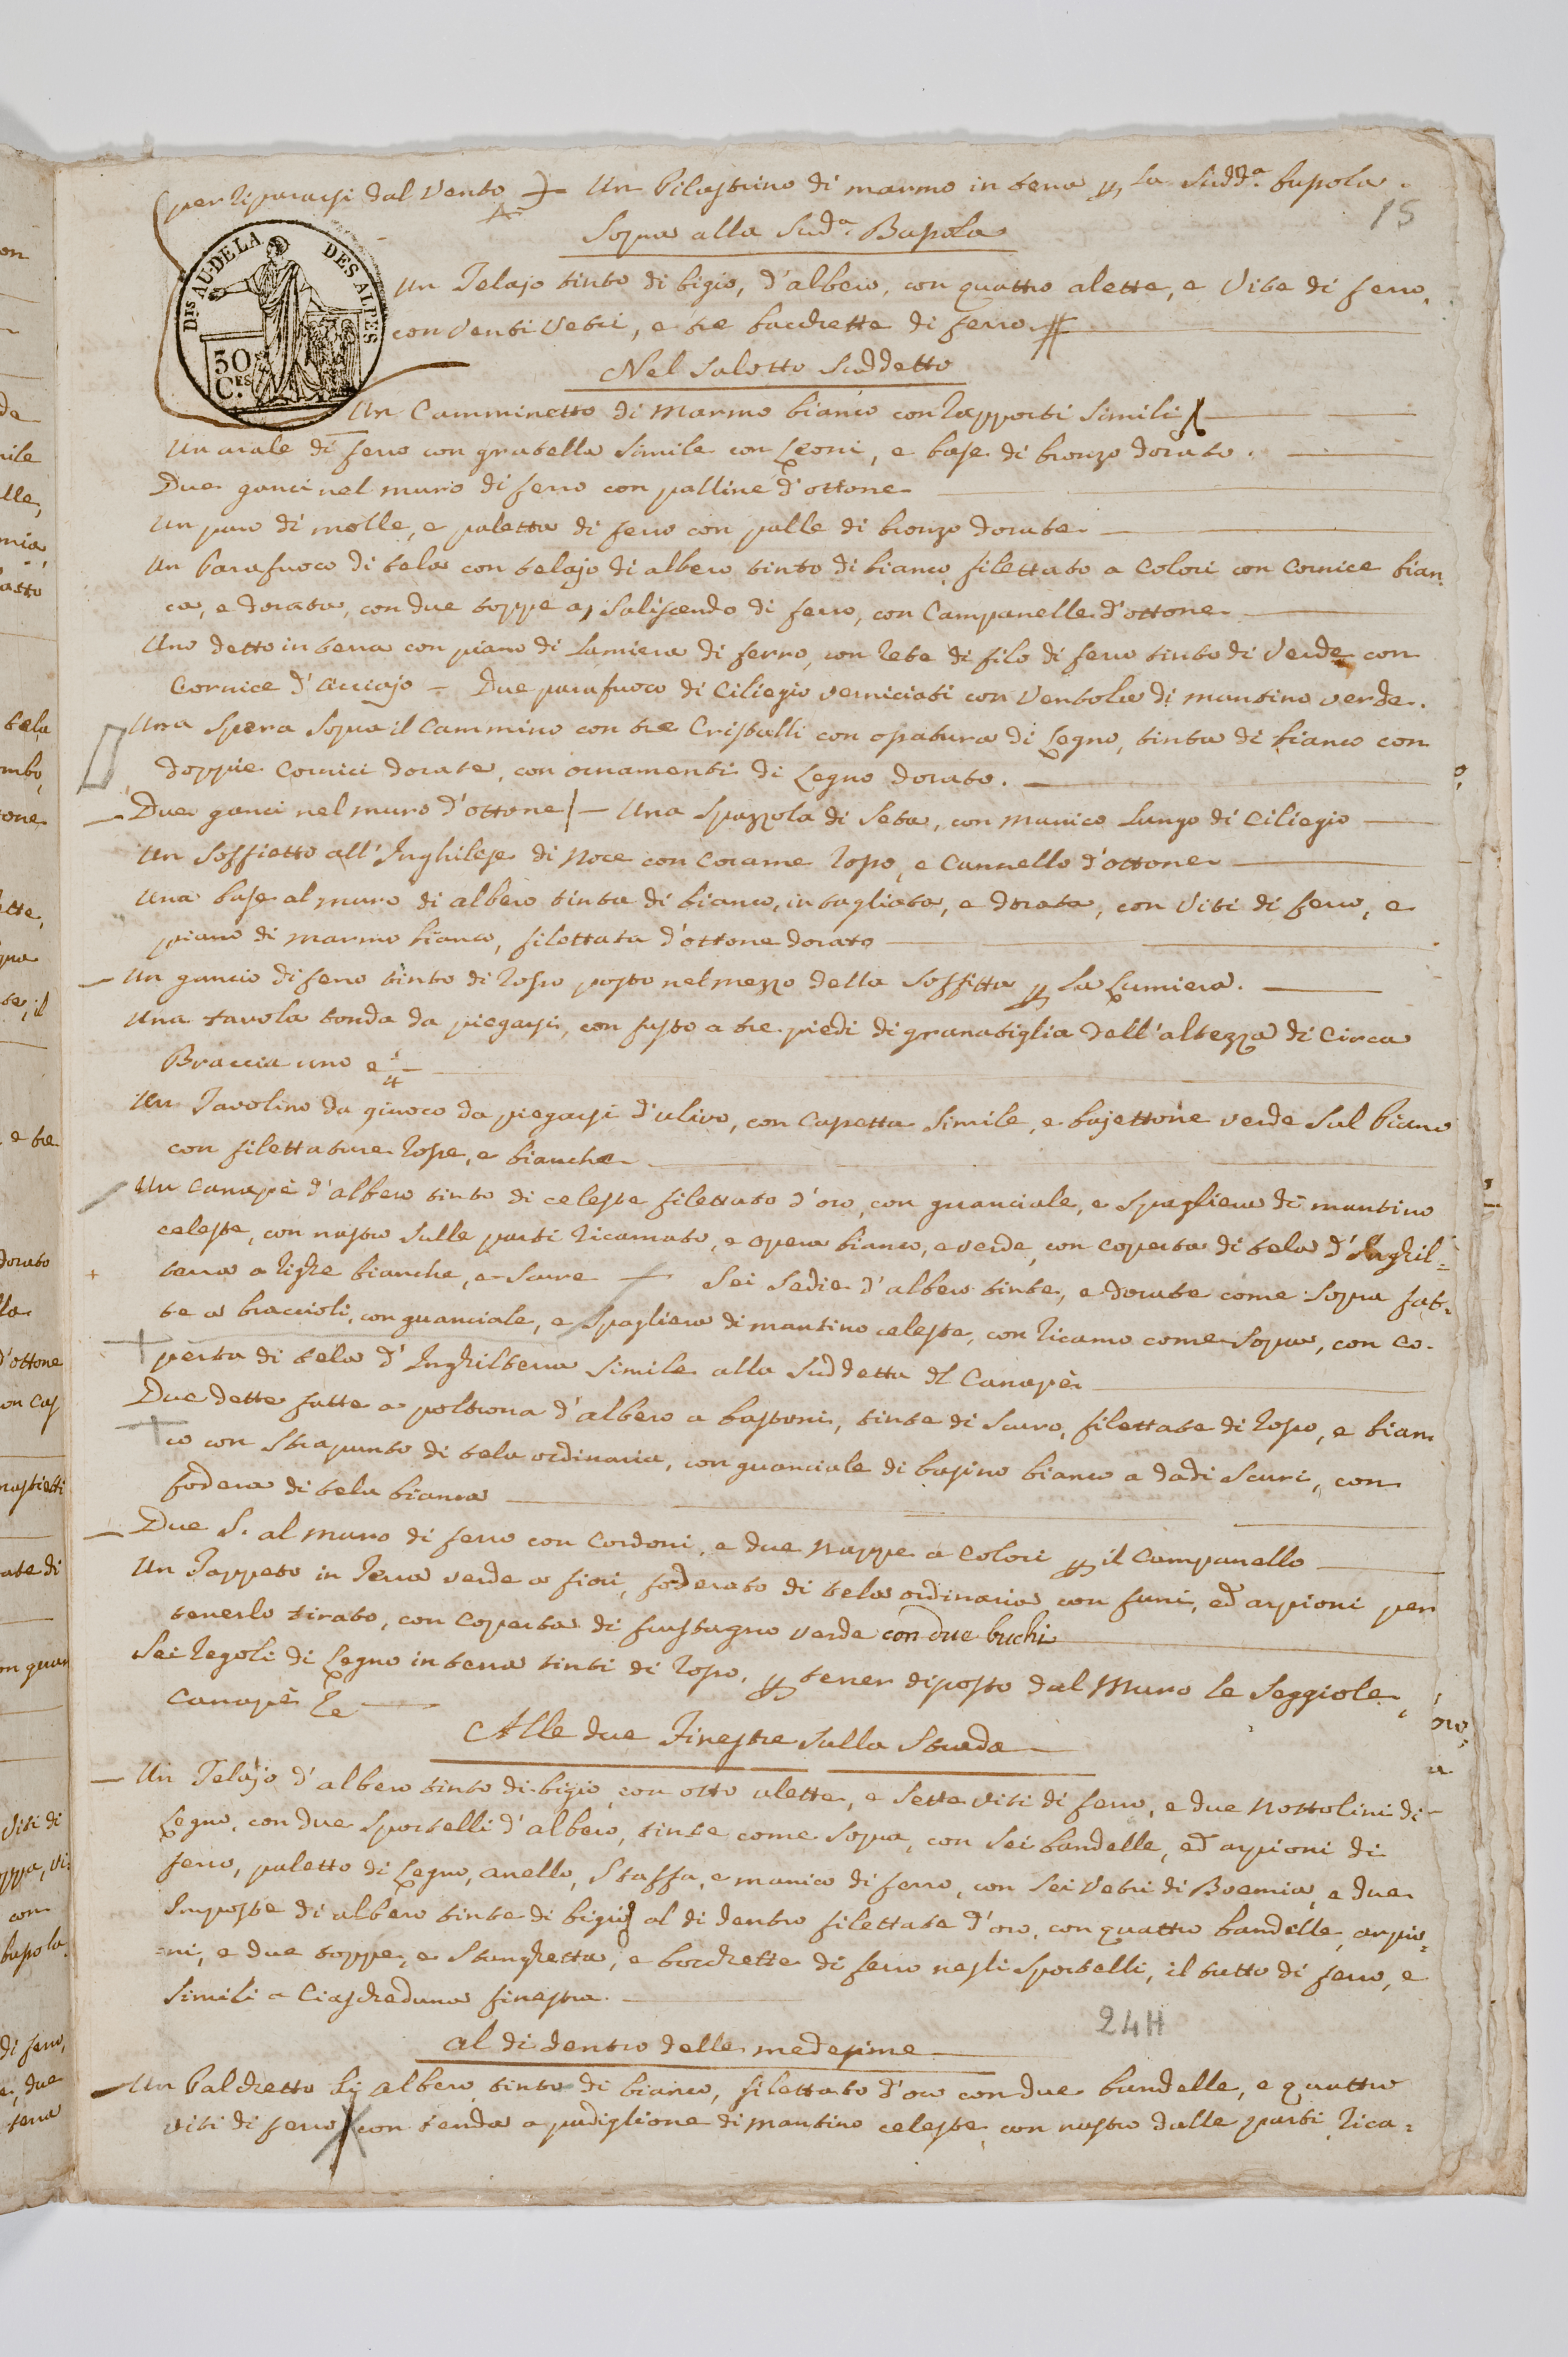 per riparassi dal Vento Un Pilastrino di marmo in terra per la Sudd.ª busola.
15
Sopra alla Sud.ª Busola
DIS AU-DELA DES ALPES
50 CES
Un Telajo tinto di bigio, d'albero, con quattro alette, e Vite di ferro,
con Venti Vetri, e tre bacchette di ferro
Nel Salotto Suddetto
Un Camminetto di Marmo bianco con rapporti Simili
Un arale di ferro con gratella Simile con Leoni, e base di bronzo dorato.
Due ganci nel muro di ferro con palline d'ottone
Un paro di molle, e paletta di ferro con palle di bronzo dorate
Un Parafuoco di tela con telajo di albero tinto di bianco filettato a Colori con Cornice bian
ca, e dorata, con due toppe a, Saliscendo di ferro, con Campanelle d'ottone
Uno detto in terra con piano di Lamiera di ferro, con rete di filo di ferro tinto di Verde con
Cornice d'Acciajo - Due parafuoco di Ciliegio verniciati con Ventola di mantino verde.
Una Spera Sopra il Cammino con tre Cristalli con opatura di Legno, tinta di bianco con
doppie Cornici dorate, con ornamenti di Legno dorato.
Due ganci nel muro d'ottone - Una Spazzola di Seta, con manico Lungo di Ciliegio
Un Soffietto all'Inghilese di Noce con Corame rosso, e Cannello d'ottone
Una base al muro di albero tinta di bianco, intagliata, e dorata, con Viti di ferro, e
piano di Marmo bianco, filettata d'ottone dorato
Un gancio di ferro tinto di rosso posto nel mezzo della Soffitta per La Lumiera.
Una tavola tonda da piegarsi, con fusto a tre piedi di granatiglia dell'altezza di Circa
Braccia uno e 1/4
Un Tavolino da giuoco da piegarsi d'ulivo, con Capetta Simile, e bajettone verde Sul Piano
con filettature rosse, e bianche
Un Canapè d'albero tinto di celeste filettato d'oro, con guanciale, e Spagliera di mantino
celeste, con nastro Sulle parti ricamato, e opera bianco, e verde, con coperta di tela d'Inghil=
terra a righe bianche, e Scure Sei Sedie d'albero tinte, e dorate come Sopra fat=
te a braccioli, con guanciale, e Spagliera di mantino celeste, con ricamo come Sopra, con co-
perta di tela d'Inghilterra Simile alla Suddetta del Canapè
Due dette fatte a poltrona d'albero a bastoni, tinte di Scuro, filettate di rosso, e bian
co con Strapunto di tela ordinaria, con guanciale di basino bianco a dadi Scuri, con
fodera di tela bianca
Due S. al muro di ferro con Cordoni, e due Nappe a Colori per il Campanello
Un Tappeto in Terra verde a fiori, foderato di tela ordinaria con funi, ed arpioni per
tenerlo tirato, con Coperta di frustagno verde con due buchi
Sei Regoli di Legno in terra tinti di rosso, per tener disposto dal Muro le Seggiole,
Canapè &c
Alle due Finestre Sulla Strada
Un Telajo d'albero tinto di bigio con otto alette, e Sette Viti di ferro, e due Nottolini di
Legno, con due Sportelli d'albero, tinte come Sopra, con Sei bandelle, ed arpioni di
ferro, paletto di Legno, anello, Staffa, e manico di ferro, con Sei Vetri di Boemia, e due
Imposte di albero tinte di bigio al di dentro filettate d'oro, con quattro bandelle, arpio=
=ni, e due toppe, e Stanghetta, e bocchette di ferro negli Sportelli, il tutto di ferro, e
Simili a Ciascheduna finestra.
24H
Al di dentro delle medesime
Un Palchetto di albero tinto di bianco, filettato d'oro con due bandelle, e quattro
viti di ferro con tenda a padiglione di Mantino celeste, con nastro dalle parti rica=